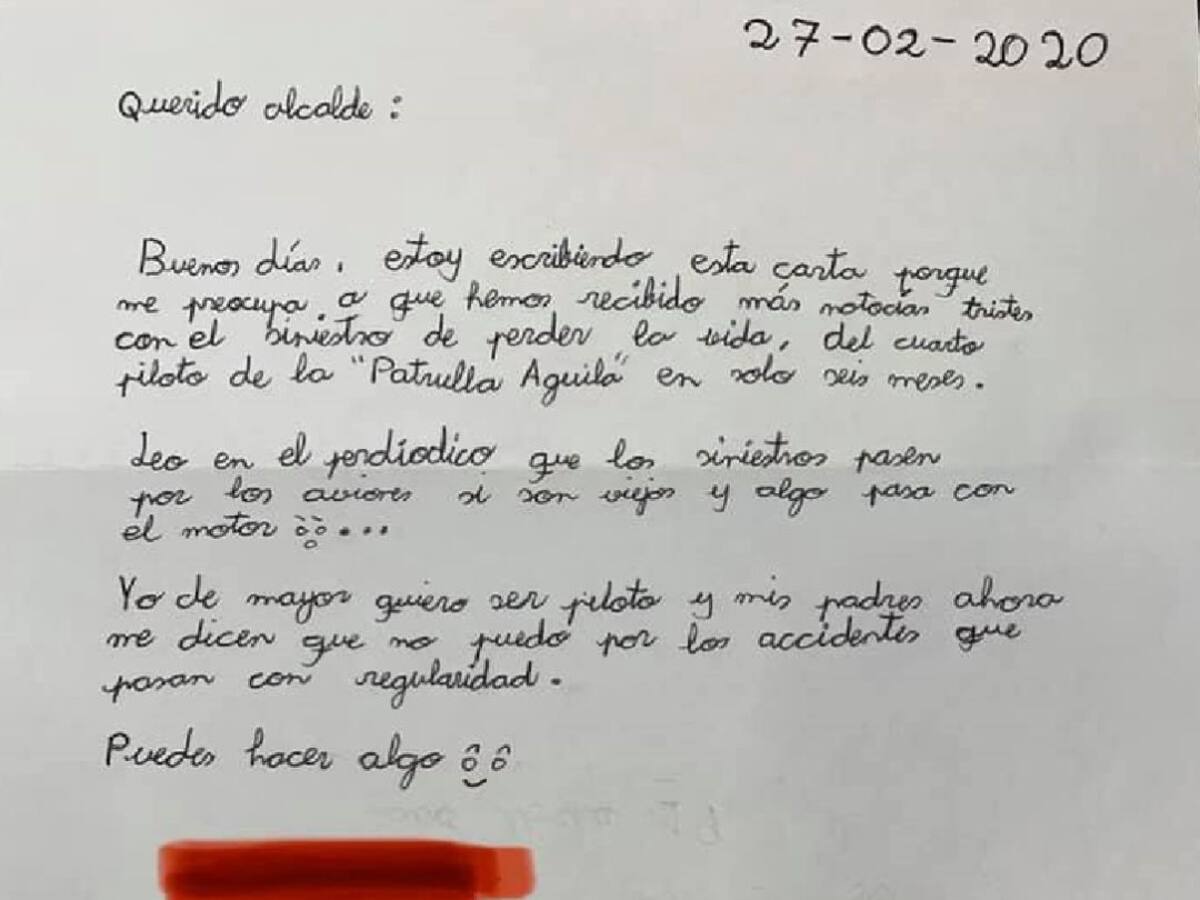 27-02-2020
Querido alcalde:
Buenos días, estoy escribiendo esta carta porque
me preocupa, a que hemos recibido más notocias tristes
con el siniestro de perder la vida, del cuarto
piloto de la "Patrulla Aguila" en solo seis meses.
Leo en el perdiodico que los siniestros pasen
por los aviores si son viejos y algo pasa con
el motor ...
Yo de mayor quiero ser piloto y mis padres ahora
me dicen que no puedo por los accidentes que
pasan con regularidad.
Puedes hacer algo